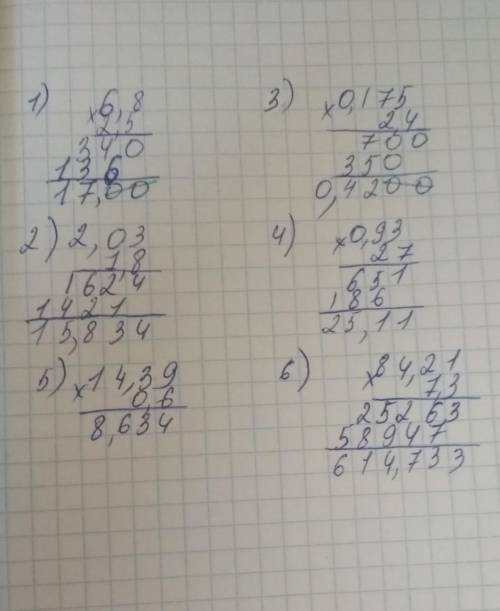 1) 6,8
× 2,5
340
136
17,00
2) 2,03
7,8
1624
1421
15,834
5) × 14,39
0,6
8,634
3) × 0,175
2,4
700
350
0,4200
4) × 0,93
27
651
186
25,11
6) × 84,21
7,3
25263
58947
614,733